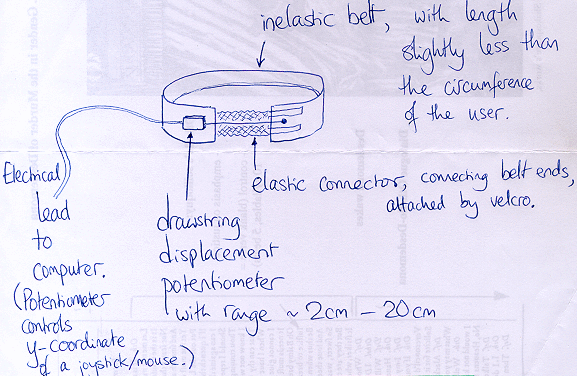 inelastic belt, with length
slightly less than
the circumference
of the user.
elastic connector, connecting belt ends,
attached by velcro.
Electrical
lead
to
computer.
(Potentiometer
controls
y-coordinate
of a joystick/mouse.)
drawstring
displacement
potentiometer
with range ~ 2cm - 20cm